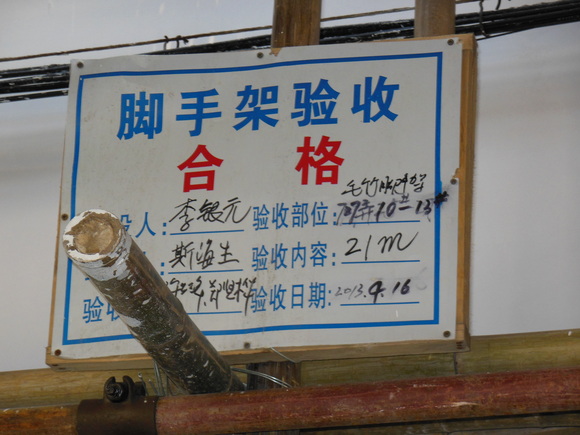 脚手架验收
合格
毛竹脚手架
设人：李银元 验收部位：
斯海生 验收内容：21m
验收 验收日期：2013.9.16